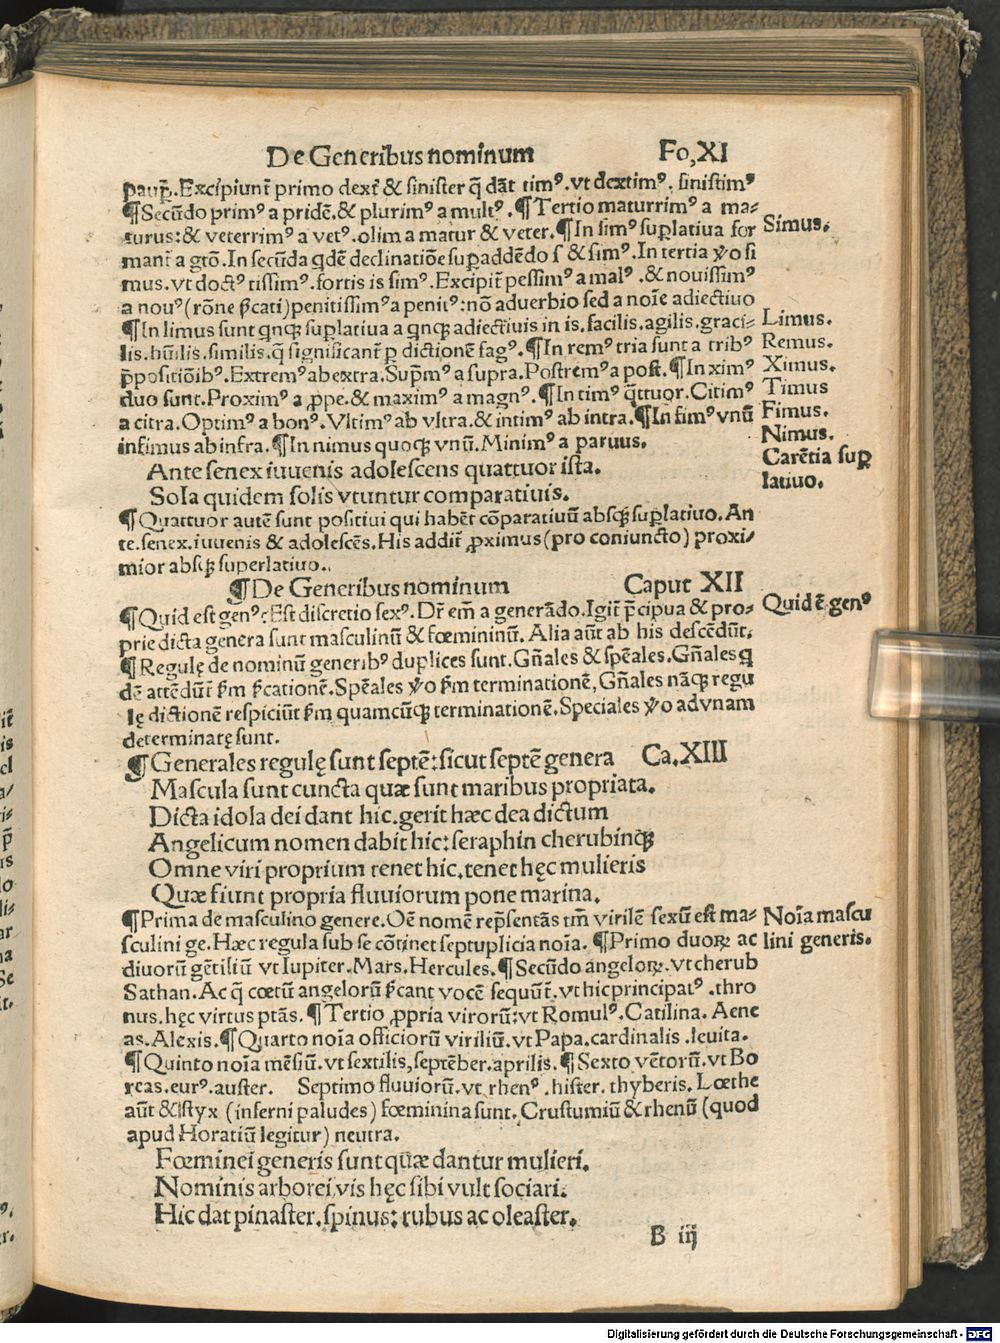 De Generibus nominum Fo,XI
paup̄. Excipiunt̃ primo dext̃ & sinister q̃ dãt timꝰ. vt dextimꝰ. sinistimꝰ
¶Secũdo primꝰ a pridẽ. & plurimꝰ a multꝰ. ¶Tertio maturrimꝰ a ma-
turus: & veterrimꝰ a vetꝰ. olim a matur & veter. ¶In simꝰ suꝑlatiua for
Simus.
mant̃ a gtõ. In secũda qdẽ declinatiõe suꝑaddẽdo s & simꝰ. In tertia ꝟo si
mus. vt doctꝰ tissimꝰ. fortis is simꝰ. Excipit̃ pessimꝰ a malꝰ. & nouissimꝰ
a nouꝰ (rõne p̃cati) penitissimꝰ a penitꝰ: nõ aduerbio sed a noĩe adiectiuo
¶In limus sunt qnqꝫ suꝑlatiua a qnqꝫ adiectiuis in is. facilis. agilis. graci-
Limus.
lis. hũilis. similis. q̃ significant̃ ꝑ dictionẽ fagꝰ. ¶In remꝰ tria sunt a tribꝰ
Remus.
p̄positiõibꝰ. Extremꝰ ab extra. Supm̃ꝰ a supra. Postremꝰ a post. ¶In ximꝰ
Ximus.
duo sunt. Proximꝰ a ꝓpe. & maximꝰ a magnꝰ. ¶In timꝰ q̃ttuor. Citimꝰ
Timus
a citra. Optimꝰ a bonꝰ. Vltimꝰ ab vltra. & intimꝰ ab intra. ¶In fimꝰ vnũ
Fimus.
infimus ab infra. ¶In nimus quoqꝫ vnũ. Minimꝰ a paruus.
Nimus.
Ante senex iuuenis adolescens quattuor ista.
Carẽtia suꝑ
Sola quidem solis vtuntur comparatiuis.
latiuo.
¶Quattuor autẽ sunt positiui qui habẽt cõparatiuũ absqꝫ suꝑlatiuo. An
te. senex. iuuenis & adolescẽs. His addit̃ ꝓximus (pro coniuncto) proxi-
mior absqꝫ superlatiuo.
¶De Generibus nominum Caput XII
¶Quid est genꝰ? Est discretio sexꝰ. Dr̃ em̃ a generãdo. Igit̃ p̃cipua & pro-
Quid ẽ genꝰ
prie dicta genera sunt masculinũ & fœmininũ. Alia aũt ab his descẽdũt.
¶Regulę de nominũ generibꝰ duplices sunt. Gñales & spẽales. Gñales q
dẽ attẽdũt̃ ẜm p̃cationẽ. Spẽales ꝟo ẜm terminationẽ, Gñales nãqꝫ regu
lę dictionẽ respiciũt ẜm quamcũqꝫ terminationẽ. Speciales ꝟo ad vnam
determinatę sunt.
¶Generales regulę sunt septẽ: sicut septẽ genera Ca.XIII
Mascula sunt cuncta quæ sunt maribus propriata.
Dicta idola dei dant hic. gerit hæc dea dictum
Angelicum nomen dabit hic: seraphin cherubinqꝫ
Omne viri proprium tenet hic. tenet hęc mulieris
Quæ fiunt propria fluuiorum pone marina.
¶Prima de masculino genere. Oẽ nomẽ rep̃sentãs tm̃ virilẽ sexũ est ma-
Noĩa mascu
sculini ge. Hæc regula sub se cõtinet septuplicia noĩa. ¶Primo duoꝝ ac
lini generis.
diuorũ gẽtiliũ vt Iupiter. Mars. Hercules. ¶Secũdo angeloꝝ. vt cherub
Sathan. Ac q̃ cœtũ angelorũ p̃cant vocẽ sequũt̃. vt hic principatꝰ. thro
nus. hęc virtus ptãs. ¶Tertio ꝓpria virorũ: vt Romulꝰ. Catilina. Aene
as. Alexis. ¶Quarto noĩa officiorũ viriliũ. vt Papa. cardinalis. leuita.
¶Quinto noĩa mẽsiũ. vt sextilis, septẽber. aprilis. ¶Sexto vẽtorũ. vt Bo
reas. eurꝰ. auster. Septimo fluuiorũ. vt rhenꝰ. hister. thyberis. Lœthe
aũt & styx (inferni paludes) fœminina sunt. Crustumiũ & rhenũ (quod
apud Horatiũ legitur) neutra.
Fœminei generis sunt quæ dantur mulieri.
Nominis arborei vis hęc sibi vult sociari.
Hic dat pinaster. spinus: rubus ac oleaster.
B iij
Digitalisierung gefördert durch die Deutsche Forschungsgemeinschaft - DFG